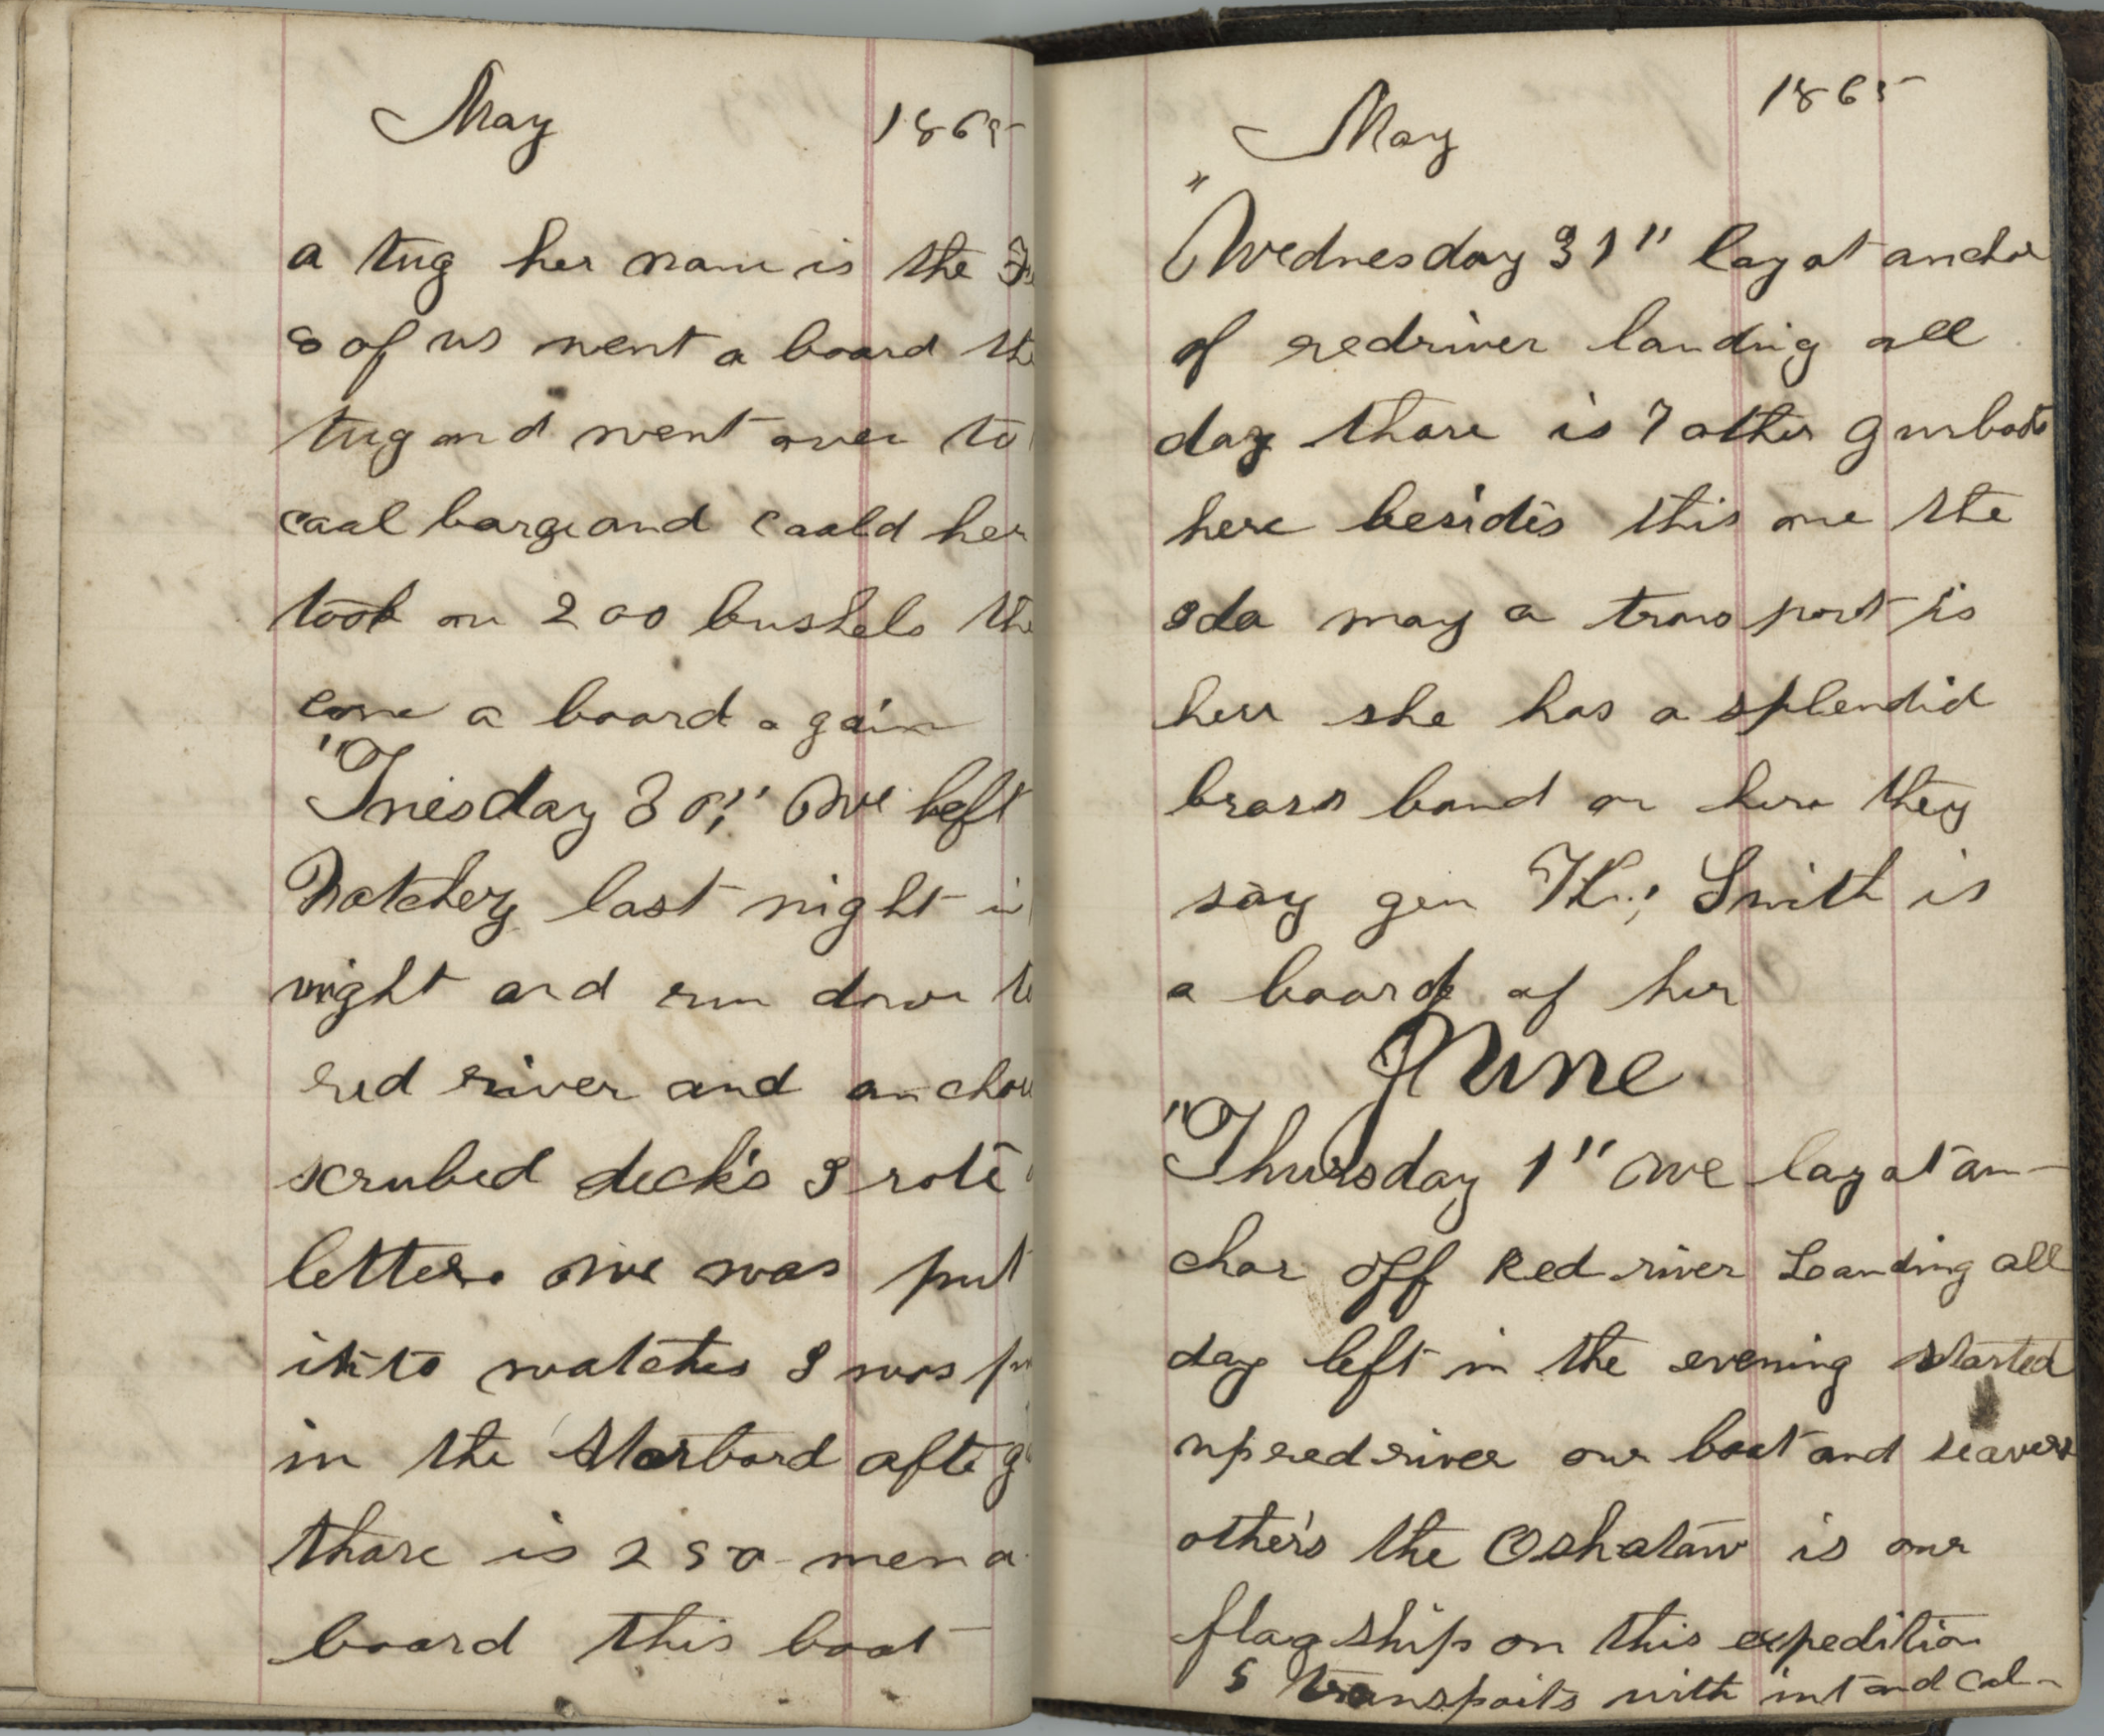 May 1865
a tug her name is the
8 of us went a board the
tug and went over to
caal barge and caald her
took on 200 bushels the
come a board a gain
"Tuesday 30;" We left
Natchez last night in
night and run down to
red river and anchor
scrubed deck's I rote
letters we was put
into watches I was
in the Starbord afte
thare is 250 men a
board this boat
May 1865
"Wednesday 31" lay at anchor
of redriver landing all
day thare is 7 other gunboats
here besides this one the
Ida may a transport is
here she has a splendid
brass band on her they
say gen K.; Smith is
a board of her
June
"Thursday 1" We lay at an-
chor off Red river Landing all
day left in the evening started
up red river our boat and
other's the Oshataw is our
flag ship on this expedition
5 transports with int and cal-